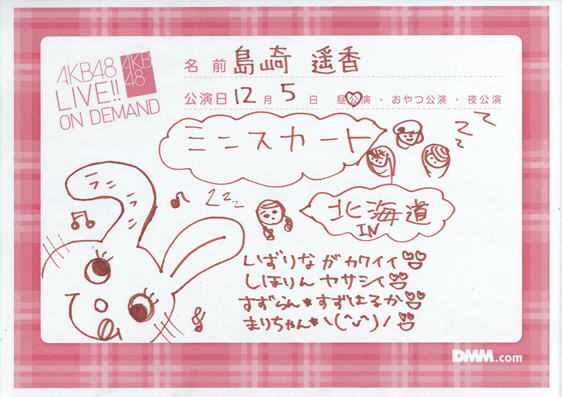 AKB48
LIVE!!
ON DEMAND
AKB
48
名前 島崎 遥香
公演日 12月 5日 昼公演・おやつ公演・夜公演
ミニスカート
zzz
zzz
北海道
IN
いずりな が カワイイ
しほりん ヤサシイ
すずらん*すずはるか
まりちゃん*\(^o^)/
DMM.com